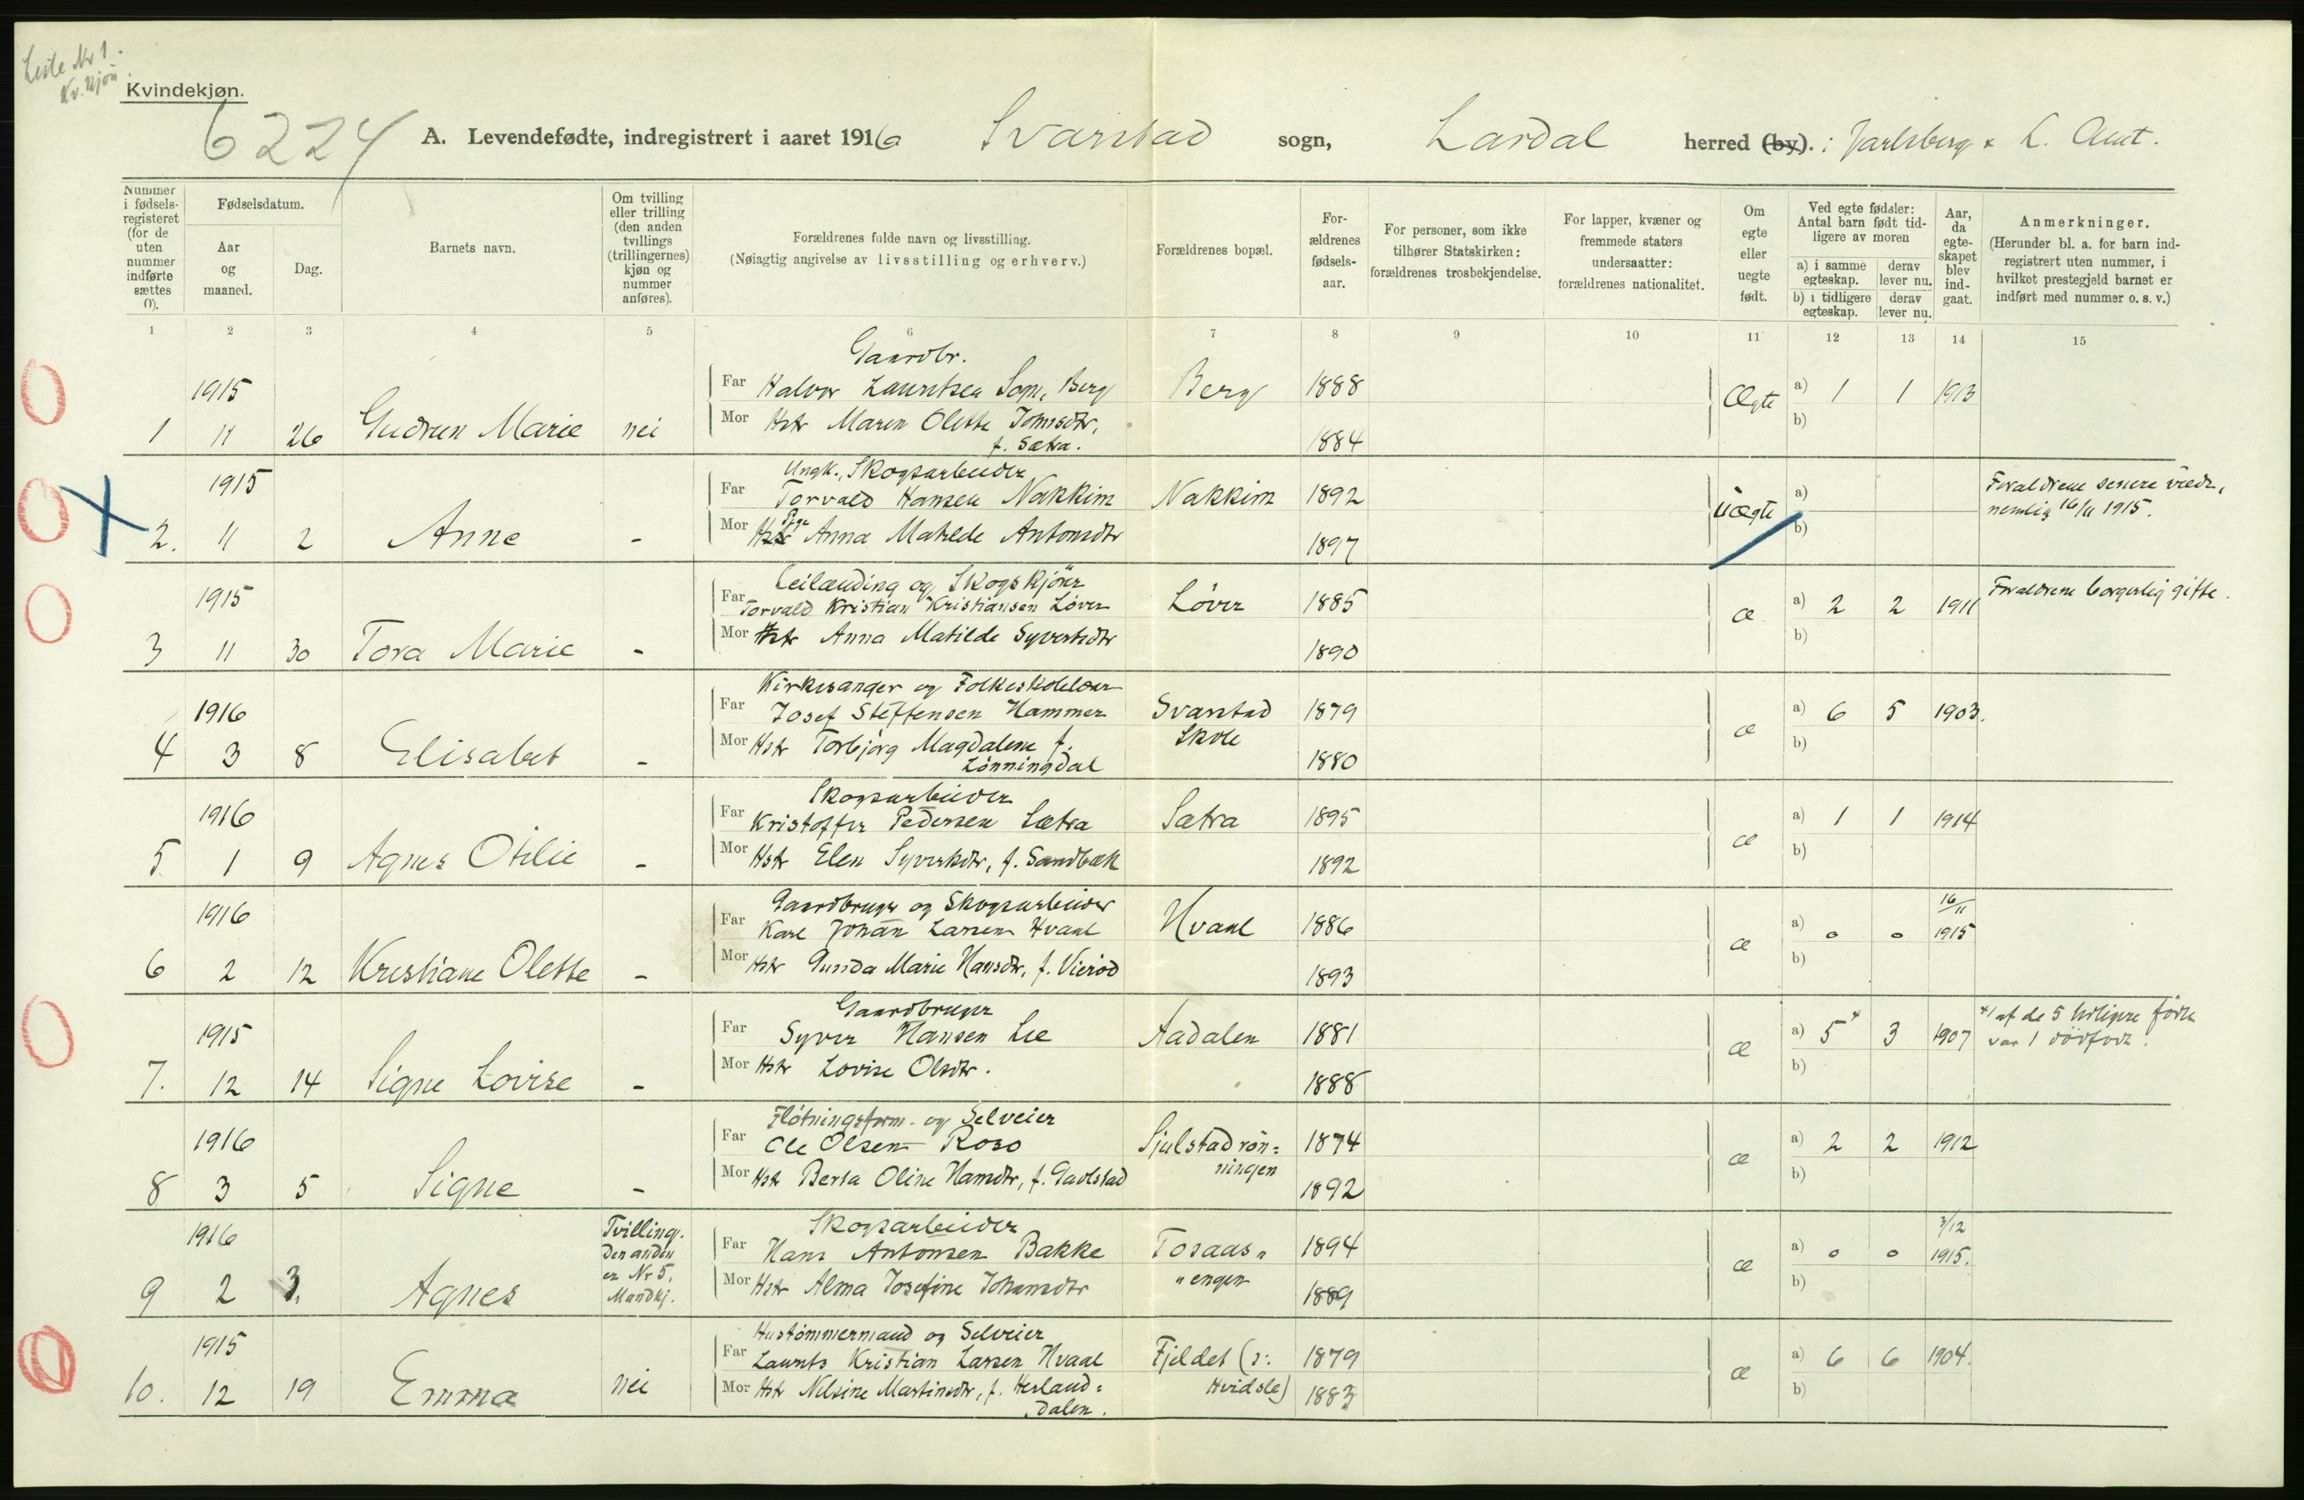 Liste Nr 1.
Kv. kjøn.
Kvindekjøn.
6224
A. Levendefødte, indregistrert i aaret 1916 Svarstad sogn, Lardal herred (by). : Jarlsberg & L. Amt.
Nummer i fødselsregisteret (for de uten nummer indførte sættes 0).
Fødselsdatum.
Aar og maaned.
Dag.
Barnets navn.
Om tvilling eller trilling (den anden tvillings (trillingernes) kjøn og nummer anføres).
Forældrenes fulde navn og livsstilling.
(Nøiagtig angivelse av livsstilling og erhverv.)
Forældrenes bopæl.
For-
ældrenes
fødsels-
aar.
For personer, som ikke
tilhører Statskirken:
forældrenes trosbekjendelse.
For lapper, kvæner og
fremmede staters
undersaatter:
forældrenes nationalitet.
Om
egte
eller
uegte
født.
Ved egte fødsler:
Antal barn født tid-
ligere av moren
a) i samme egteskap.
derav lever nu.
b) i tidligere egteskap.
derav lever nu.
Aar, da egte-
skapet blev ind-
gaat.
Anmerkninger.
(Herunder bl. a. for barn ind-
registrert uten nummer, i
hvilket prestegjeld barnet er
indført med nummer o. s. v.)
1 2 3 4 5 6 7 8 9 10 11 12 13 14 15
Gaardbr.
1915 Far Halvor Lauritsen Sogn, Berg Berg 1888 Ægte a) 1 1 1913
1 11 26 Gudrun Marie nei Mor Hstr Maren Olette Johnsdtr, 1884 b)
f. Sætra.
Ungk. Skogsarbeider
1915 Far Torvald Hansen Nakkim Nakkim 1892 Uægte a) Forældrene senere viede,
nemlig 16/11 1915.
2. 11 2 Anne - Mor Pige Anna Matilde Antonsdtr 1897 b)
Leilænding og Skogskjører
1915 Far Torvald Kristian Kristiansen Løver Løver 1885 æ a) 2 2 1911 Forældrene borgerlig gifte.
3 11 30 Tora Marie - Mor Hstr Anna Matilde Syvertsdtr 1890 b)
Kirkesanger og Folkeskolelærer
1916 Far Josef Steffensen Hammer Svarstad 1879 æ a) 6 5 1903.
4 3 8 Elisabet - Mor Hstr Torbjørg Magdalene f. Skole 1880 b)
Lønningdal
Skogsarbeider
1916 Far Kristoffer Pedersen Sætra Sætra 1895 æ a) 1 1 1914
5 1 9 Agnes Otilie - Mor Hstr Elen Syvertsdtr, f. Sandbæk 1892 b)
Gaardbruger og Skogsarbeider 16/11
1916 Far Karl Johan Larsen Hvaal Hvaal 1886 æ a) 0 0 1915
6 2 12 Kristiane Olette - Mor Hstr Gunda Marie Hansdtr, f. Vierød 1893 b)
Gaardbruger
1915 Far Syver Hansen Lie Aadalen 1881 æ a) 5 x 3 1907 x) af de 5 tidligere fødte
var 1 dødfødt.
7. 12 14 Signe Lovise - Mor Hstr Lovise Olsdtr. 1888 b)
Fløtningsform. og Selveier
1916 Far Ole Olsen Roso Sjulstadrøn= 1874 æ a) 2 2 1912
8 3 5 Signe - Mor Hstr Berta Oline Hansdtr, f. Gavlstad ningen 1892 b)
Skogsarbeider 3/12
1916 Tvilling. Far Hans Antonsen Bakke Toraas= 1894 æ a) 0 0 1915.
Den anden
er Nr 5,
9 2 3. Agnes Mandkj. Mor Hstr Alma Josefine Johansdtr "engen 1889 b)
Hustømmermand og Selveier
1915 Far Laurits Kristian Larsen Hvaal Fjeldet (s: 1879 æ a) 6 6 1904.
10. 12 19 Emma nei Mor Hstr Nilsine Martinsdtr, f. Herland= Hvidsle) 1883 b)
dalen.